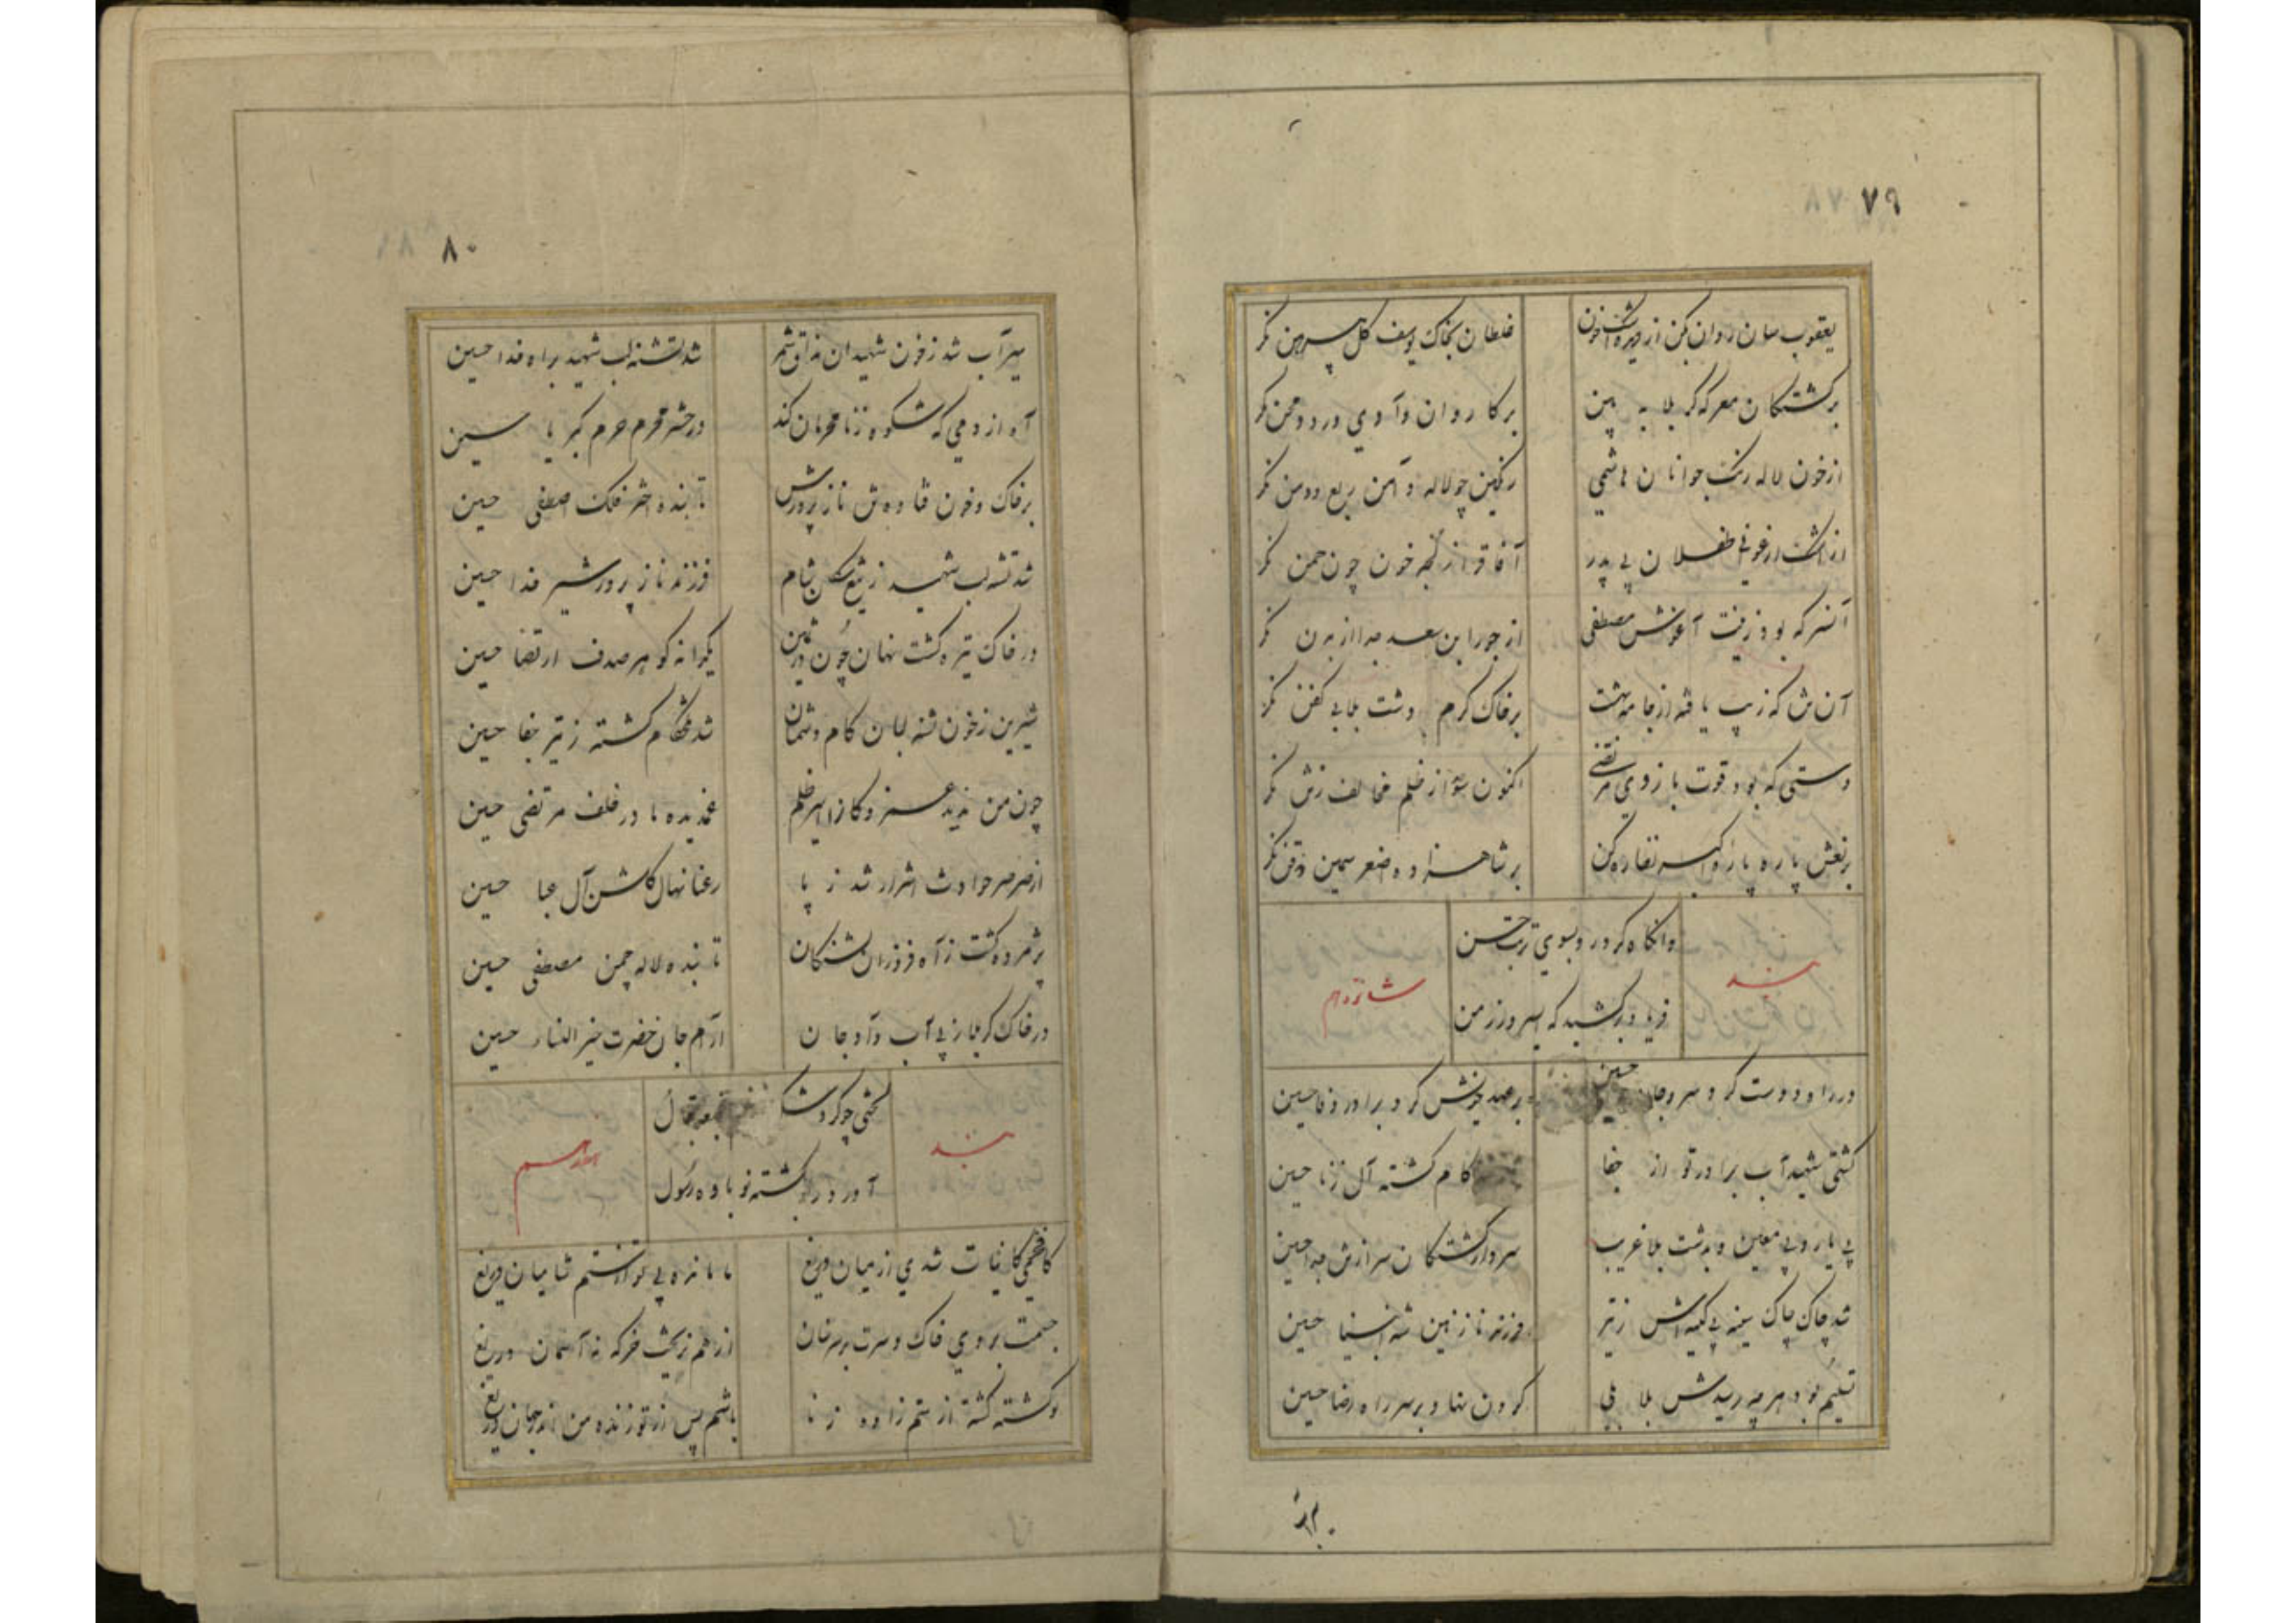 ۷۹
یعقوب سان روان کن از دیده اشک خون
غلطان بخاک یوسف گل پیرهن نگر
بر کشتگان معرکه کربلا به بین
بر کاروان وادی درد و محن نگر
از خون لاله رنگ جوانان هاشمی
رنگین چو لاله دامن ربع و دمن نگر
از اشک ارغوانی طفلان بی پدر
آفاق را ز خون چون چمن نگر
آنسر که بود زینت آغوش مصطفی
از جور ابن سعد جدا از بدن نگر
آن تن که زیب یافته از جامه بهشت
بر خاک گرم دشت بلا بی کفن نگر
دستی که بود قوت بازوی مرتضی
اکنون از ظلم مخالف زتن نگر
بر نعش پاره پاره اکبر نظاره کن
بر شاهزاده اصغر سیمین ذقن نگر
وانگاه کرد رو بسوی تربت حسن
بند
شانزدهم
فریاد برکشید که ای سرو رز من
در راه دوست کرد سر و جان حسین
بر عهد خویش کرد برادر وفا حسین
گشتی شهید آب برادر تو از جفا
کام کشته آل زنا حسین
بی یار و بی معین و بدشت بلا غریب
سردار کشتگان سر از تن جدا حسین
شد چاک چاک سینه بی کینه اش ز تیر
فرزند نازنین شه انبیا حسین
تسلیم بود هر چه رسیدش بلا بلی
گردن نهاد بر سر راه رضا حسین
۸۰
سیرآب شد ز خون شهیدان مذاق شمر
شد تشنه لب شهید براه خدا حسین
آه از دمی که شکوه ز نامحرمان کند
در حشر محرم حرم کبریا حسین
بر خاک و خون فتاده تن نازپرورش
تابنده اختر فلک اصطفی حسین
شد تشنه لب شهید ز تیغ سگان شام
فرزند نازپرور شیر خدا حسین
در خاک تیره گشت نهان چون در ثمین
یکدانه گوهر صدف ارتضا حسین
شیرین ز خون تشنه لبان کام دشمنان
شد تلخکام کشته ز تیر جفا حسین
چون من ندید عزیزو کانرا اسیر ظلم
غمدیده مادر خلف مرتضی حسین
از صرصر حوادث اشرار شد ز پا
رعنا نهال گلشن آل عبا حسین
پژمرده گشت ز آه فروزان تشنگان
تابنده لاله چمن مصطفی حسین
در خاک کربلا ز پی آب داد جان
آرام جان حضرت خیرالنساء حسین
لختی چو کرد
بند
آورد رو بکشته نوباوه رسول
کافخمی کاینات شدی از میان دریغ
ما مانده بی تو از ستم شامیان دریغ
جسمت بروی خاک و سرت بر سر سنان
از هم نریخت خرگه نه آسمان دریغ
تو کشته گشته از ستم زاده زنا
باشم پس از تو زنده من اندر جهان دریغ